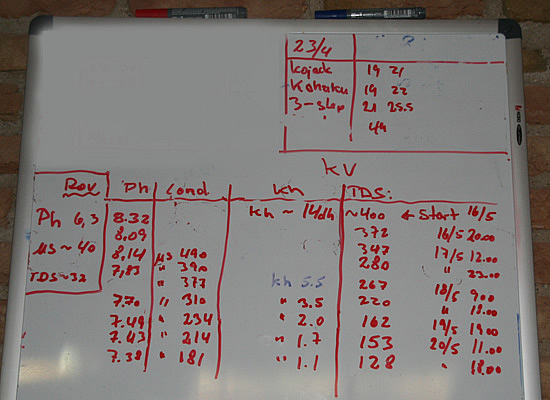 23/4
Kojack 19 21
Kohaku 19 22
3-step 21 25.5
" 44
KV
Rov Ph Cond Kh TDS:
Ph 6,3 8.32 Kh ~ 14/dh ~400 ← Start 16/5
8,09 372 16/5 20.00
µs ~ 40 8,14 µs 490 347 17/5 12.00
7,83 " 390 280 " 23.00
TDS ~ 32 " 373 kh 5.5 267 18/5 9.00
7.70 " 310 " 3.5 220 " 18.00
7.49 " 234 " 2.0 162 19/5 19.00
7.43 " 214 " 1.7 153 20/5 11.00
7.38 " 181 " 1.1 128 " 18.00